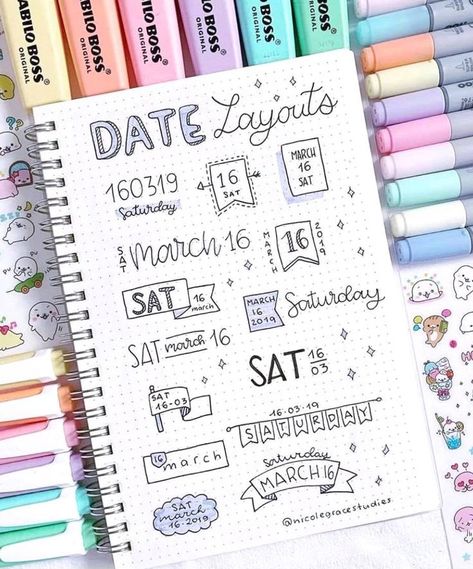 STABILO BOSS
ORIGINAL
STABILO BOSS
ORIGINAL
STABILO BOSS
ORIGINAL
STABILO BOSS
ORIGINAL
STABILO BOSS
ORIGINAL
BOSS
ORIGINAL
DATE Layouts
160319
Saturday
16
SAT
MARCH
16
SAT
SAT
March 16
MARCH
16
2019
SAT
16
march
MARCH
16
2019
Saturday
SAT march 16
SAT 16
03
SAT
16-03
16-03-19
SATURDAY
16 march
Saturday
MARCH 16
SAT
march
16·2019
@nicolegracestudies